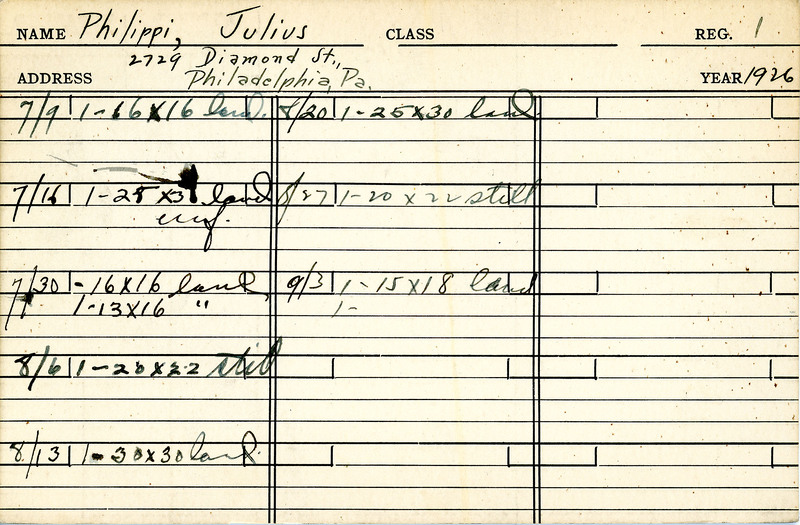 NAME Philippi, Julius CLASS REG. 1
2729 Diamond St.,
ADDRESS Philadelphia, Pa. YEAR 1926
7/9 1-16x16 land.
7/16 1-25x3 land
unf.
7/30 -16x16 land,
1-13x16 "
8/6 1-20x22 still
8/13 1-30x30 land.
8/20 1-25x30 land
8/27 1-20 x 22 still
9/3 1-15x18 land
1-